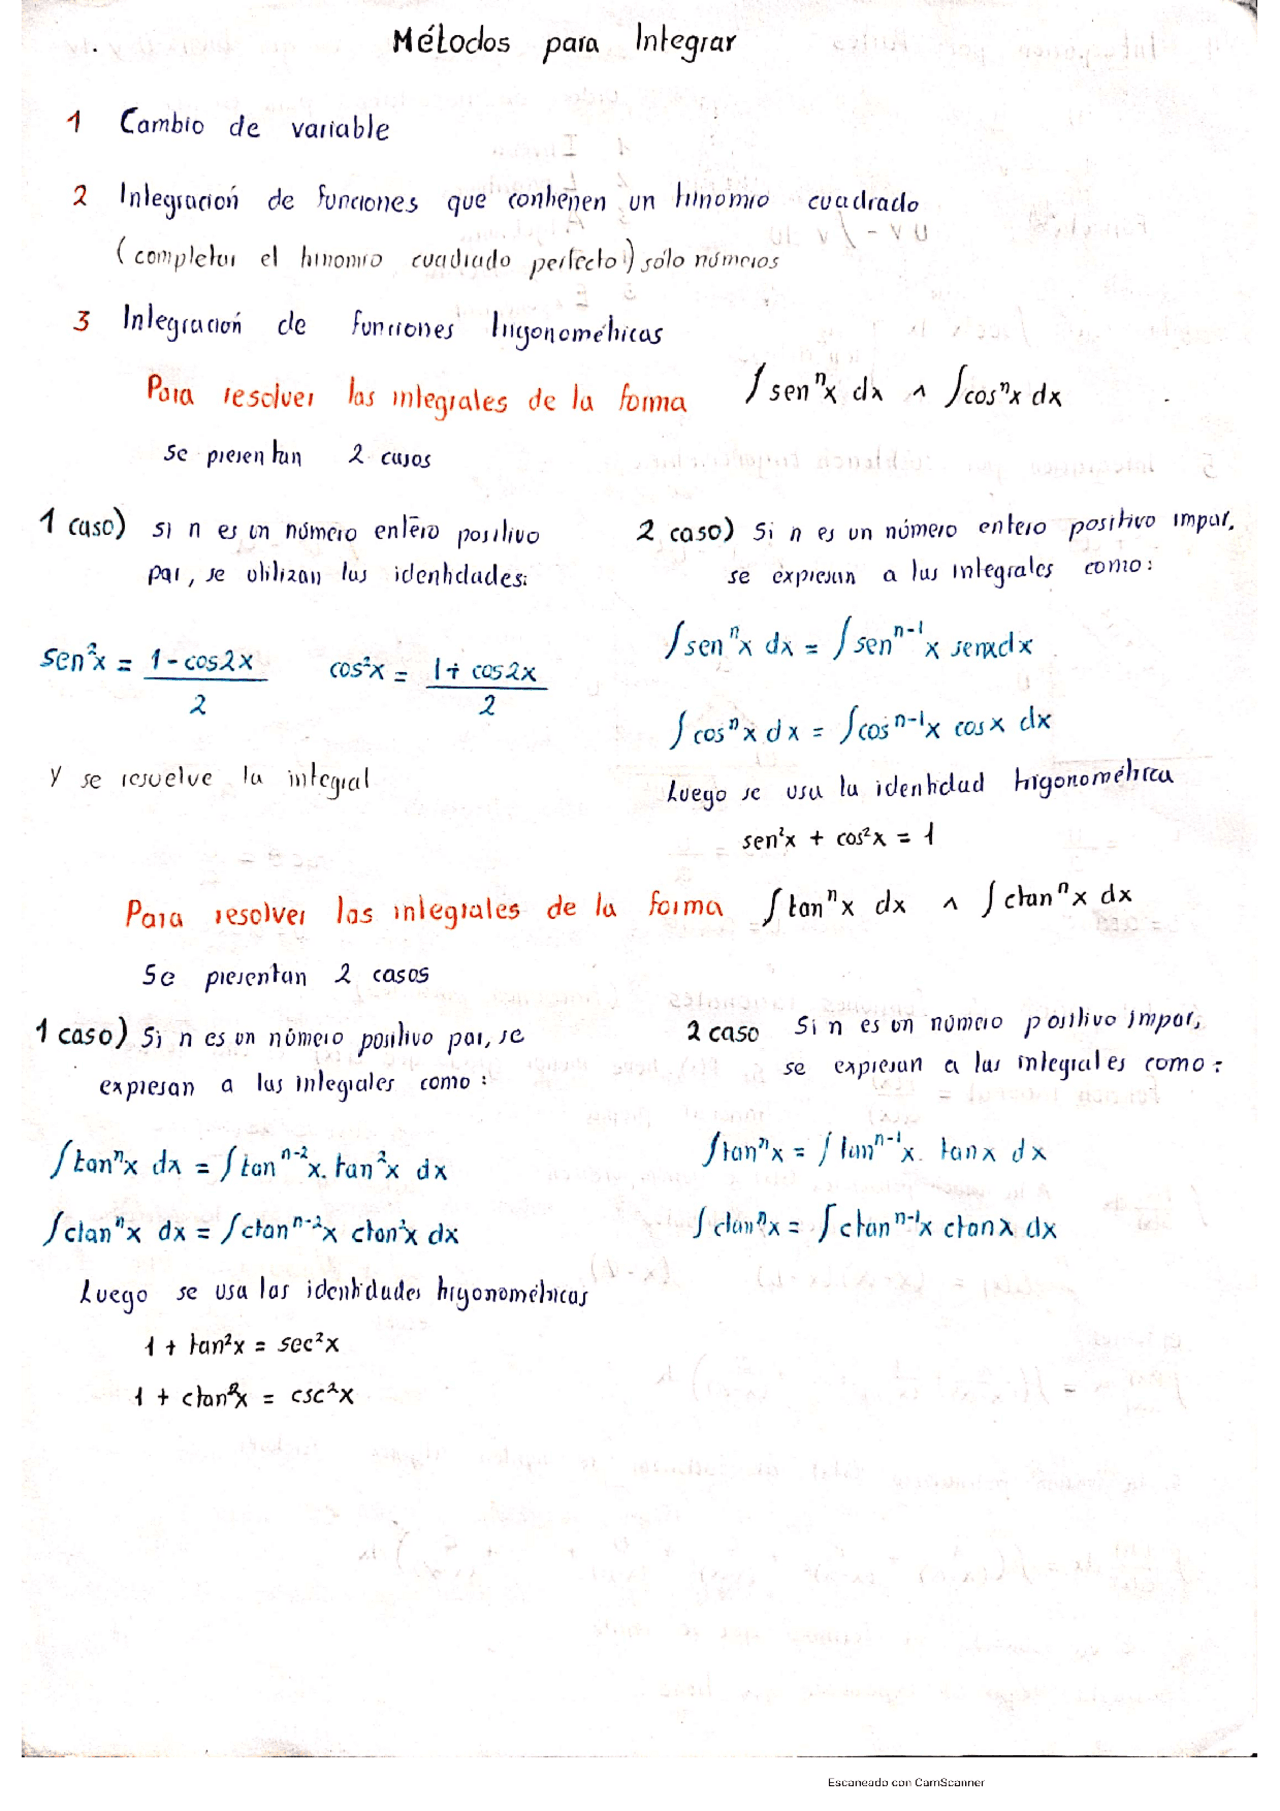 Métodos para Integrar
1 Cambio de variable
2 Integración de funciones que contienen un binomio cuadrado
(completar el binomio cuadrado perfecto) sólo números
3 Integración de funciones trigonométricas
Para resolver las integrales de la forma ∫senⁿx dx ∧ ∫cosⁿx dx
se presentan 2 casos
1 caso) si n es un número entero positivo
par, se utilizan las identidades:
sen²x = (1 - cos2x)/2 cos²x = (1 + cos2x)/2
y se resuelve la integral
2 caso) Si n es un número entero positivo impar,
se expresan a las integrales como:
∫senⁿx dx = ∫senⁿ⁻¹x senx dx
∫cosⁿx dx = ∫cosⁿ⁻¹x cosx dx
Luego se usa la identidad trigonométrica
sen²x + cos²x = 1
Para resolver las integrales de la forma ∫tanⁿx dx ∧ ∫ctanⁿx dx
Se presentan 2 casos
1 caso) Si n es un número positivo par, se
expresan a las integrales como:
∫tanⁿx dx = ∫tanⁿ⁻²x. tan²x dx
∫ctanⁿx dx = ∫ctanⁿ⁻²x ctan²x dx
Luego se usa las identidades trigonométricas
1 + tan²x = sec²x
1 + ctan²x = csc²x
2 caso Si n es un número positivo impar,
se expresan a las integrales como:
∫tanⁿx = ∫tanⁿ⁻¹x. tanx dx
∫ctanⁿx = ∫ctanⁿ⁻¹x ctanx dx
Escaneado con CamScanner